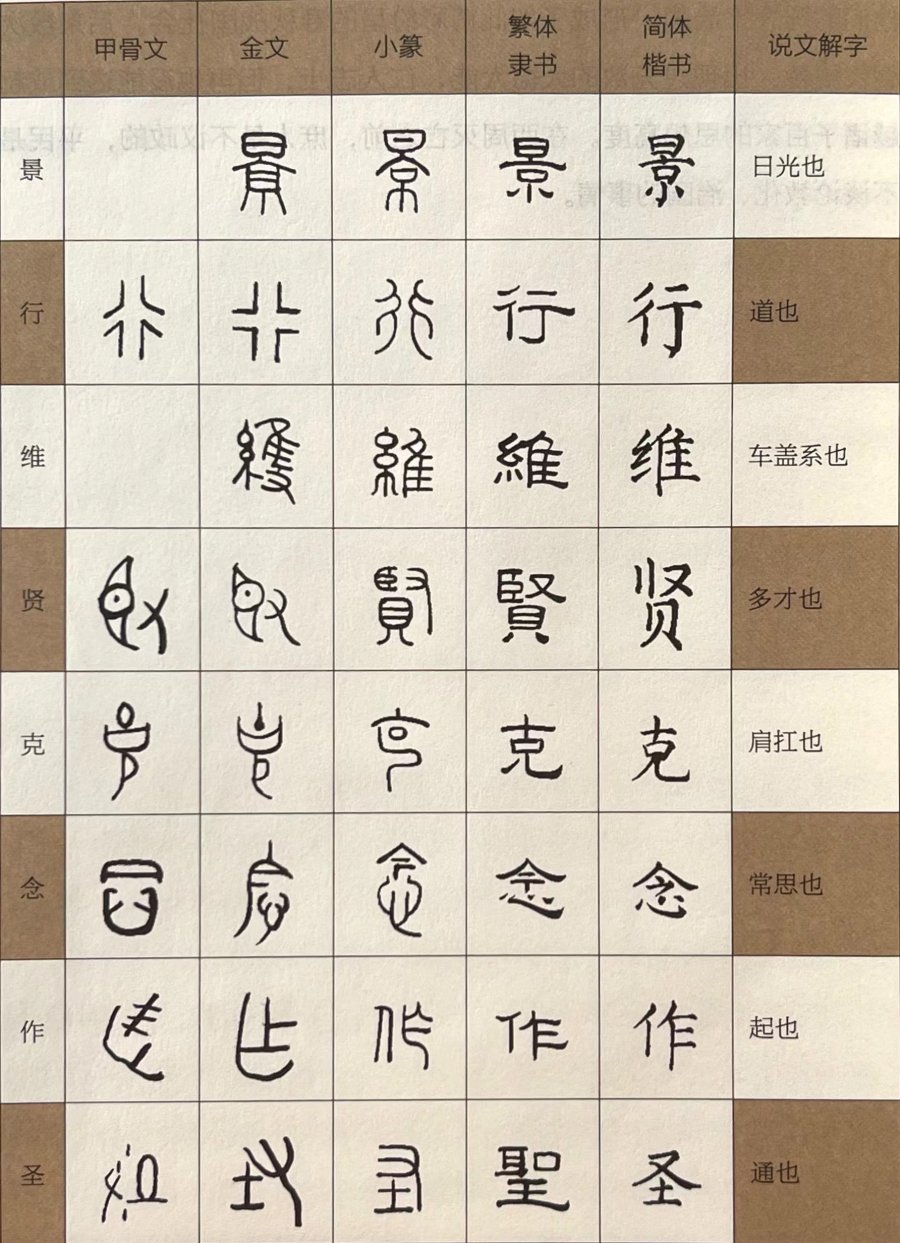 甲骨文 金文 小篆 繁体隶书 简体楷书 说文解字
景 景 景 景 景 日光也
行 行 行 行 行 行 道也
维 維 維 維 维 车盖系也
贤 臤 臤 賢 賢 贤 多才也
克 克 克 克 克 克 肩扛也
念 念 念 念 念 念 常思也
作 乍 乍 作 作 作 起也
圣 圣 聖 圣 通也